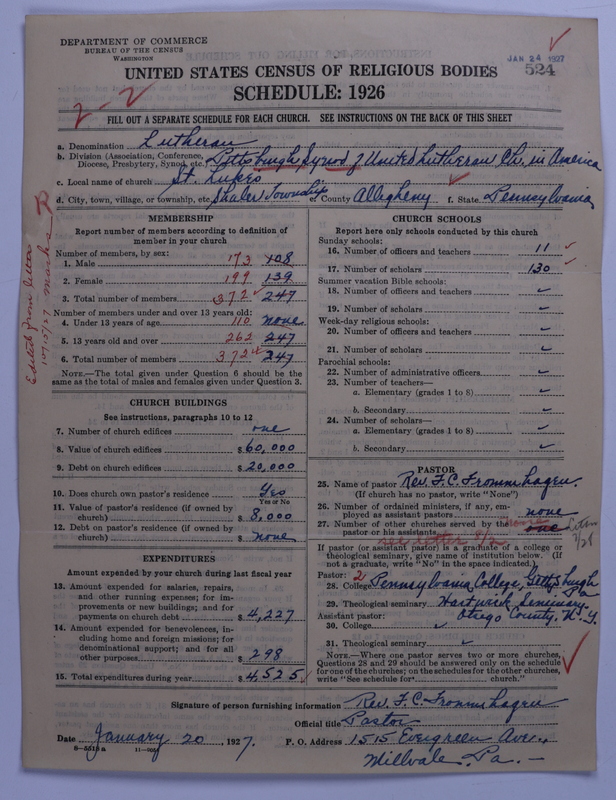 DEPARTMENT OF COMMERCE
BUREAU OF THE CENSUS
WASHINGTON
JAN 24 1927
524
UNITED STATES CENSUS OF RELIGIOUS BODIES
SCHEDULE: 1926
2-2
FILL OUT A SEPARATE SCHEDULE FOR EACH CHURCH. SEE INSTRUCTIONS ON THE BACK OF THIS SHEET
a. Denomination Lutheran
b. Division (Association, Conference, Diocese, Presbytery, Synod, etc.) Pittsburgh Synod of United Lutheran Ch. in America
c. Local name of church St. Lukes
d. City, town, village, or township, etc. Shaler Township e. County Allegheny f. State Pennsylvania
Edited from letter 10/15/27
MEMBERSHIP
Report number of members according to definition of
member in your church
Number of members, by sex:
1. Male 173 108
2. Female 199 139
3. Total number of members 372 247
Number of members under and over 13 years old:
4. Under 13 years of age 110 none
5. 13 years old and over 262 247
6. Total number of members 372 247
NOTE.—The total given under Question 6 should be
the same as the total of males and females given under Question 3.
CHURCH BUILDINGS
See instructions, paragraphs 10 to 12
7. Number of church edifices one
8. Value of church edifices $ 60,000
9. Debt on church edifices $ 20,000
10. Does church own pastor's residence Yes
Yes or No
11. Value of pastor's residence (if owned by
church) $ 8,000
12. Debt on pastor's residence (if owned by
church) $ none
EXPENDITURES
Amount expended by your church during last fiscal year
13. Amount expended for salaries, repairs,
and other running expenses; for im-
provements or new buildings; and for
payments on church debt $ 4,227
14. Amount expended for benevolences, in-
cluding home and foreign missions; for
denominational support; and for all
other purposes $ 298
15. Total expenditures during year $ 4,525
CHURCH SCHOOLS
Report here only schools conducted by this church
Sunday schools:
16. Number of officers and teachers 11
17. Number of scholars 130
Summer vacation Bible schools:
18. Number of officers and teachers
19. Number of scholars
Week-day religious schools:
20. Number of officers and teachers
21. Number of scholars
Parochial schools:
22. Number of administrative officers
23. Number of teachers—
a. Elementary (grades 1 to 8)
b. Secondary
24. Number of scholars—
a. Elementary (grades 1 to 8)
b. Secondary
PASTOR
25. Name of pastor Rev. F. C. Frommhagen.
(If church has no pastor, write "None")
26. Number of ordained ministers, if any, em-
ployed as assistant pastors none
27. Number of other churches served by the
pastor or his assistants none one letter
see letter 8/2
If pastor (or assistant pastor) is a graduate of a college or
theological seminary, give name of institution below. (If
not a graduate, write "No" in the space indicated.)
Pastor: 2
28. College Pennsylvania College, Gettysburgh Pa
29. Theological seminary Hartwick Seminary
Assistant pastor: Otsego County, N.Y.
30. College
31. Theological seminary
NOTE.—Where one pastor serves two or more churches,
Questions 28 and 29 should be answered only on the schedule
for one of the churches; on the schedules for the other churches,
write "See schedule for church."
Signature of person furnishing information Rev. F. C. Frommhagen
Official title Pastor
Date January 20, 1927. P. O. Address 1515 Evergreen Ave.,
8-5518a Millvale, Pa.